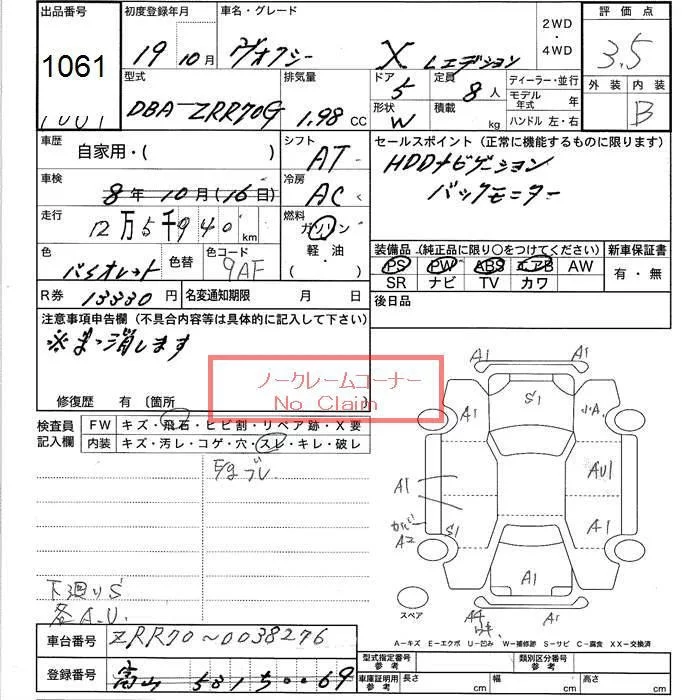 出品番号 初度登録年月 車名・グレード 2WD・4WD 評価点
1061 19年10月 ヴォクシー X Lエディション 3.5
型式 排気量 ドア 定員 ディーラー・並行 外装 内装
DBA-ZRR70G 1.98 CC 5 8人 モデル年式 年 B
形状 W 積載 kg ハンドル 左・右
車歴 自家用・( ) シフト AT セールスポイント(正常に機能するものに限ります)
HDDナビゲーション
バックモニター
車検 8年10月(16日) 冷房 AC
走行 12万5千940km 燃料 ガソリン・軽油・( )
装備品(純正品に限り○をつけてください) 新車保証書
PS PW ABS エアB AW 有・無
SR ナビ TV カワ
色 バイオレット 色替 色コード 9AF
R券 13330円 名変通知期限 月 日 後日品
注意事項申告欄(不具合内容等は具体的に記入して下さい)
※まっ消します
ノークレームコーナー
No Claim
修復歴 有〔箇所
検査員記入欄 FW キズ・飛石・ヒビ割・リペア跡・X要
内装 キズ・汚レ・コゲ・穴・スレ・キレ・破レ
E/gブレ
下廻りS
各A.U.
A1 A1
A1 S1 A1
A1 AU1
カバー A2 S1 A1
A1
スペア A4 A1
A-キズ E-エクボ U-凹み W-補修跡 S-サビ C-腐食 XX-交換済
車台番号 ZRR70~0038276
登録番号 富山 581 5 ・・69
型式指定番号参考 類別区分番号参考
車庫証明用参考 長さ cm 幅 cm 高さ cm